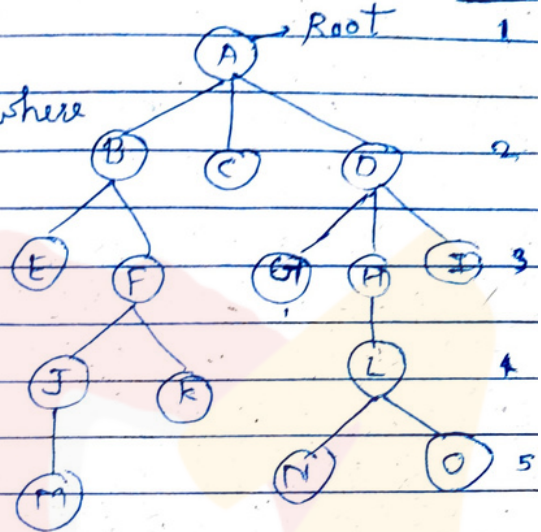 A → Root 1
where
B C D 2
E F G H I 3
J K L 4
M N O 5